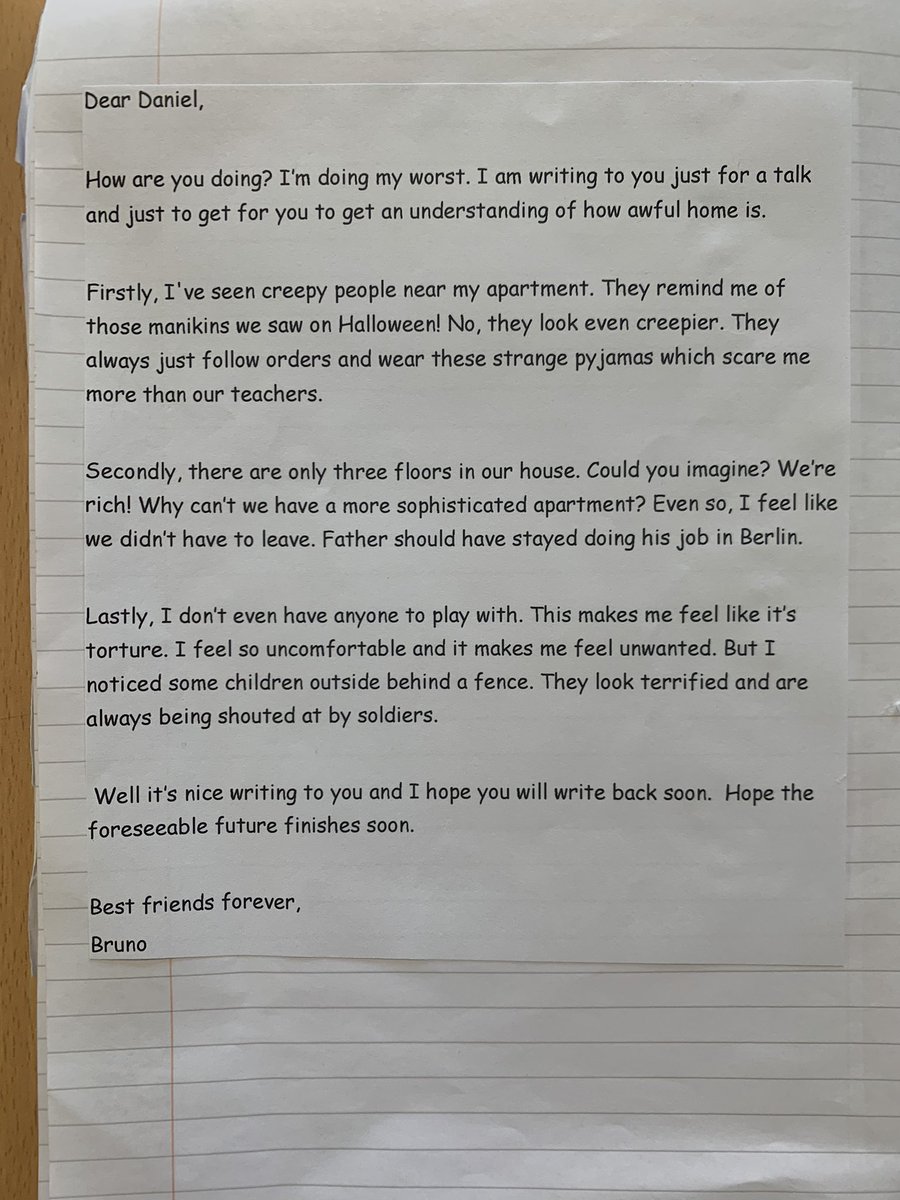 Dear Daniel,
How are you doing? I'm doing my worst. I am writing to you just for a talk
and just to get for you to get an understanding of how awful home is.
Firstly, I've seen creepy people near my apartment. They remind me of
those manikins we saw on Halloween! No, they look even creepier. They
always just follow orders and wear these strange pyjamas which scare me
more than our teachers.
Secondly, there are only three floors in our house. Could you imagine? We're
rich! Why can't we have a more sophisticated apartment? Even so, I feel like
we didn't have to leave. Father should have stayed doing his job in Berlin.
Lastly, I don't even have anyone to play with. This makes me feel like it's
torture. I feel so uncomfortable and it makes me feel unwanted. But I
noticed some children outside behind a fence. They look terrified and are
always being shouted at by soldiers.
Well it's nice writing to you and I hope you will write back soon. Hope the
foreseeable future finishes soon.
Best friends forever,
Bruno